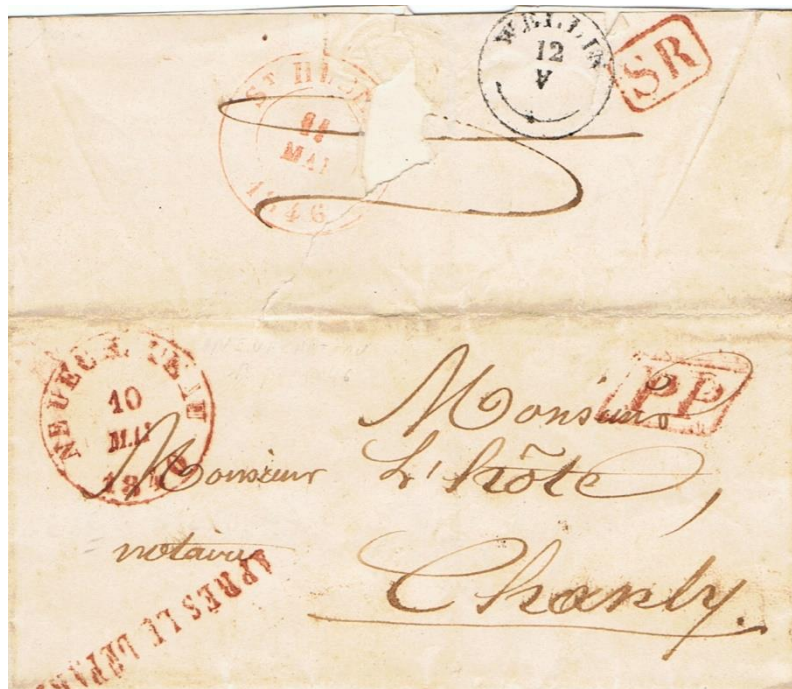 WELLIN
12
V
SR
ST HUB
11
MAI
1846
NEUFCHATEAU
10
MAI
1846
PP
Monsieur
L'hôte,
Monsieur
notaire
Chanly.
APRES LE DEPART